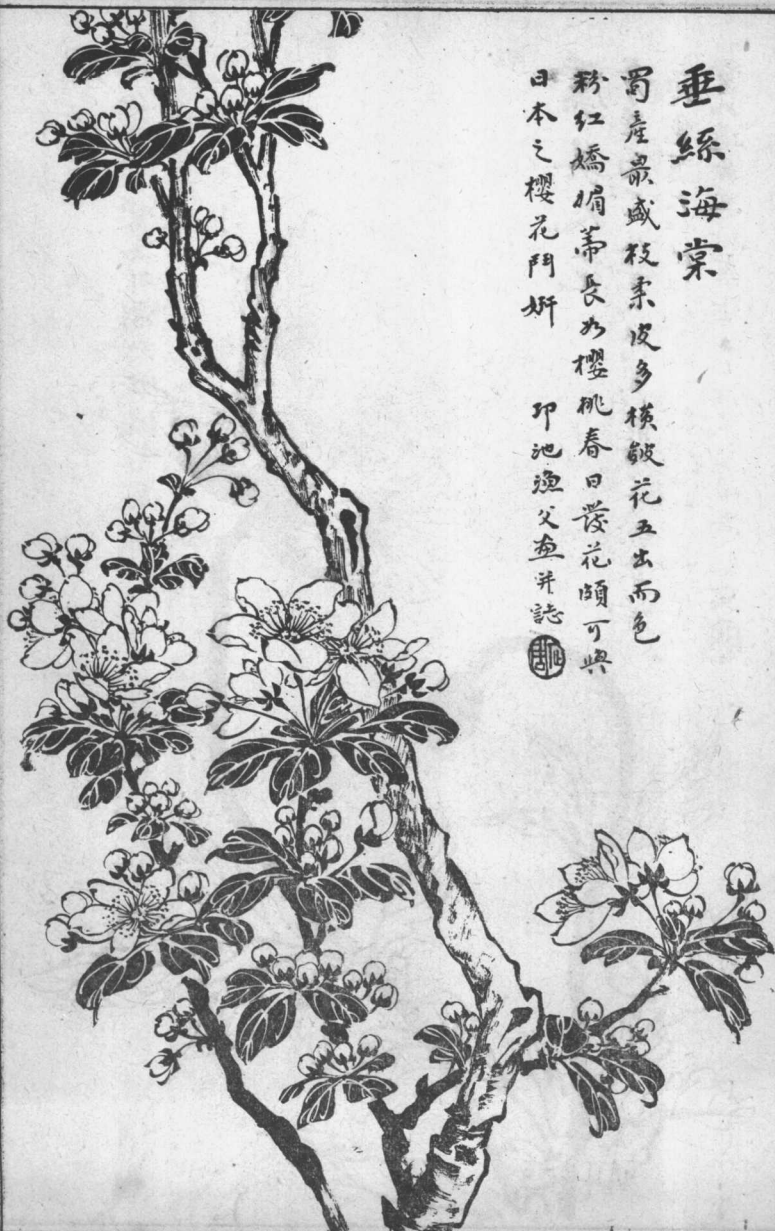 垂絲海棠
蜀產最盛枝柔皮多橫皴花五出而色
粉紅嬌媚蒂長如櫻桃春日發花頗可與
日本之櫻花鬥妍
卬池漁父畫并誌